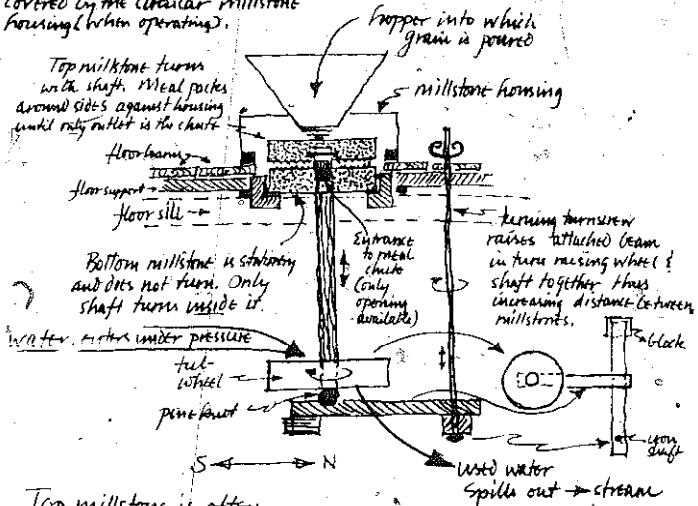 covered by the circular millstone
housing (when operating).
hopper into which
grain is poured
Top millstone turns
with shaft. Meal packs
around sides against housing
until only outlet is the chute
millstone housing
floor beams
floor support
floor sill
Bottom millstone is stationary
and does not turn. Only
shaft turns inside it.
Entrance
to meal
chute
(only
opening
available)
turning turnscrew
raises attached beam
in turn raising wheel &
shaft together thus
increasing distance between
millstones.
water enters under pressure
tub-
wheel
pine knot
block
iron
shaft
S N
used water
spills out → stream
Top millstone is often